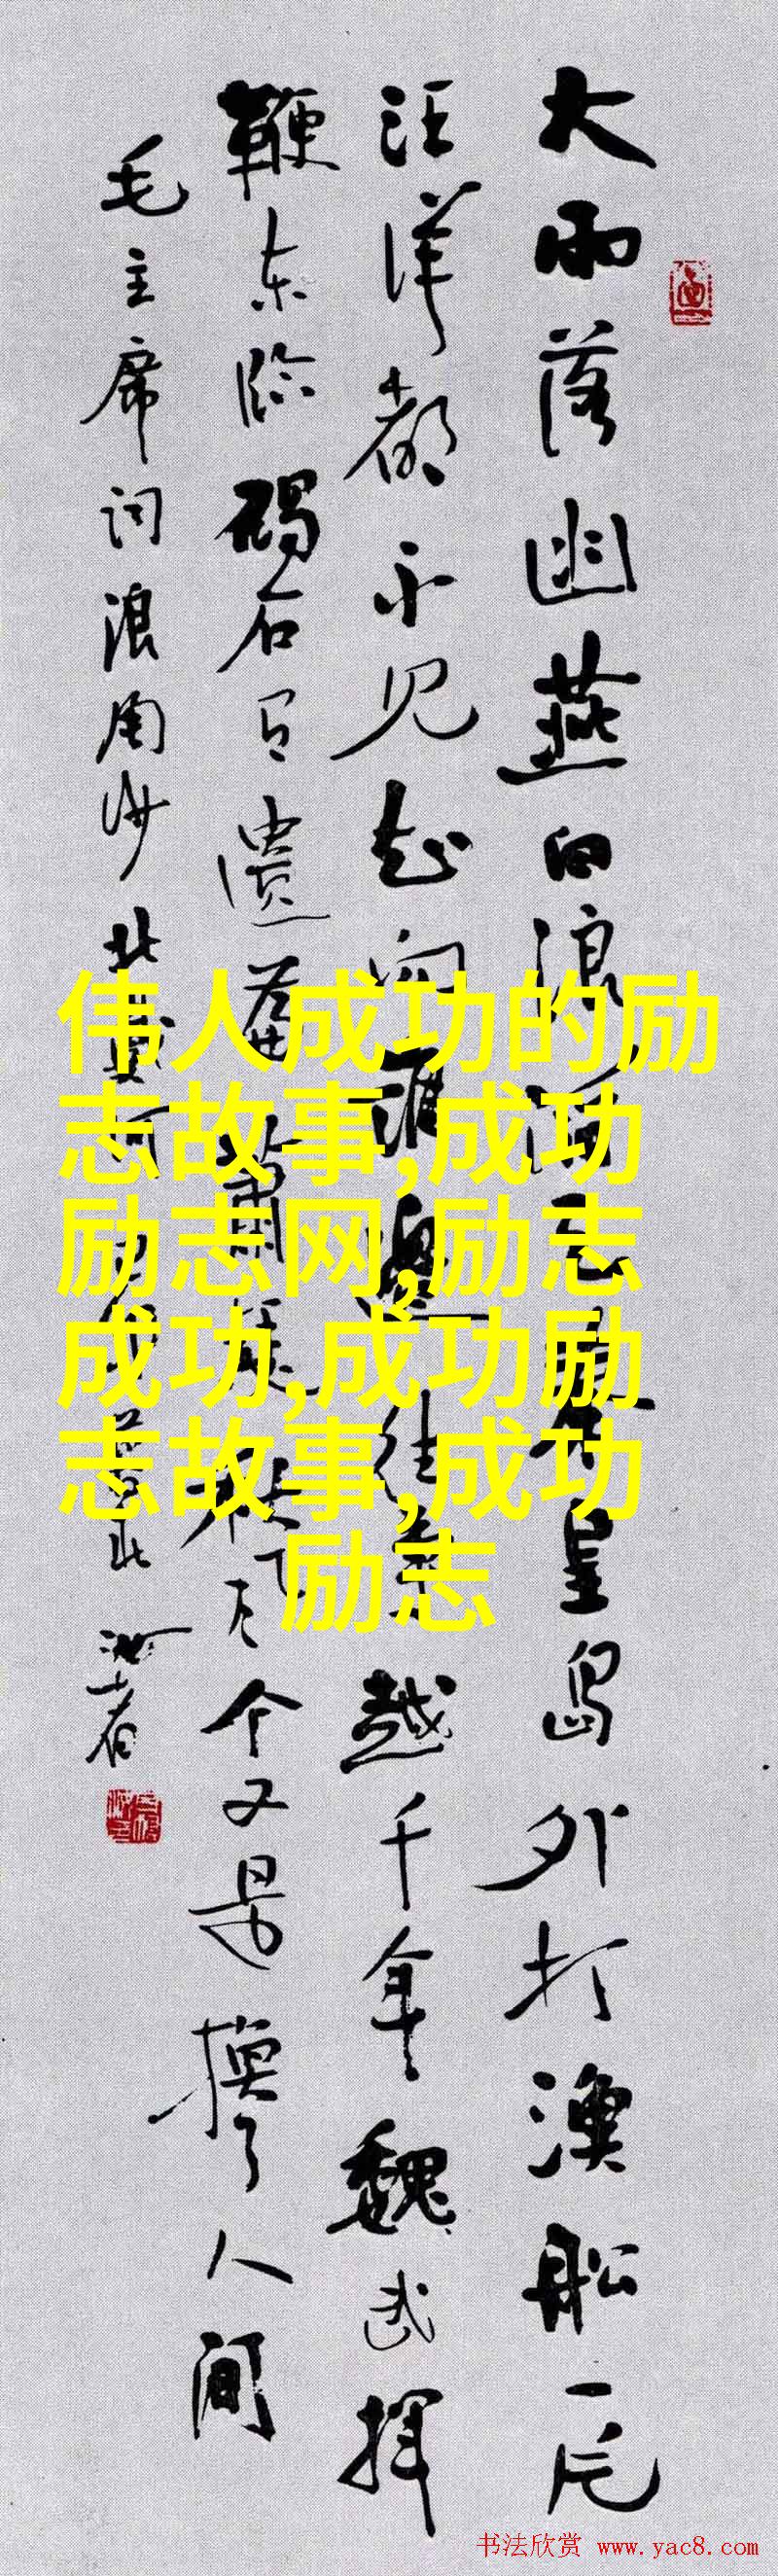 大雨落幽燕白浪滔天秦皇岛外打漁船一片
汪洋都不见知向谁邊往事越千年魏武揮
鞭东临碣石有遺篇蕭瑟秋风今又是換了人间
毛主席词浪淘沙北戴河
伟人成功的励
志故事,成功
励志网,励志
成功,成功励
志故事,成功
励志
书法欣赏 www.yac8.com